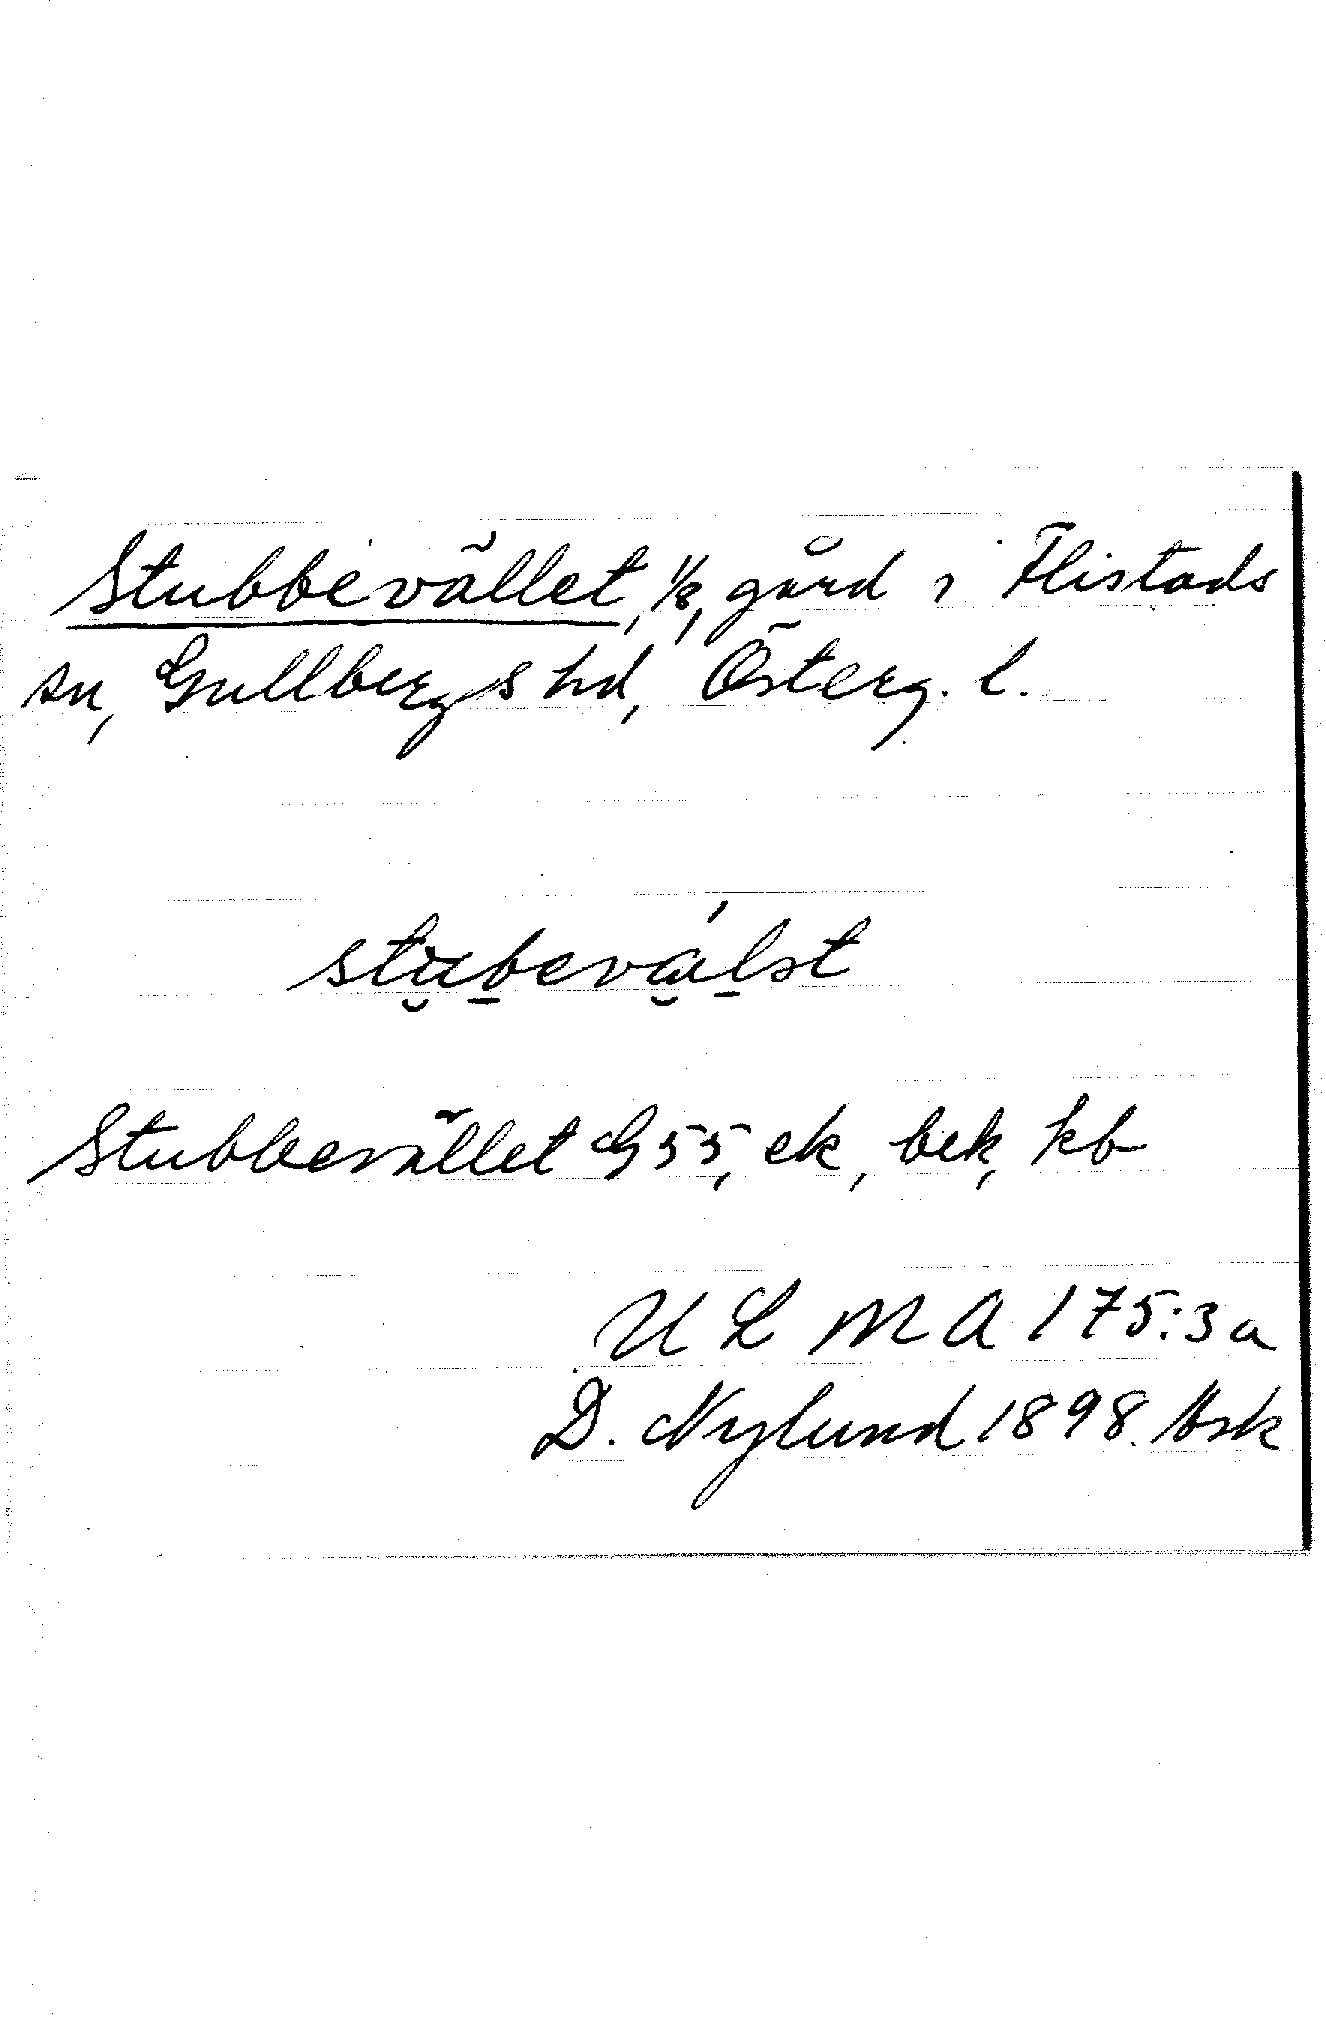 Stubbevället, 1/8, gård i Flistads
sn, Gullbergs hd, Österg. l.
stu̮b̲evǽ̮l̲ət
Stubbevället G55, ek, bek, kb
ULMA 175:3a
D. Nylund 1898.